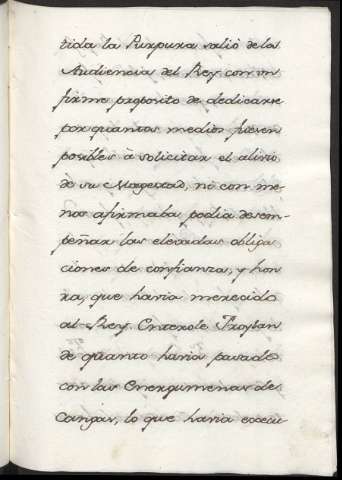 tida la Purpura salió de las
Audiencias del Rey con un
firme proposito de dedicarse
por quantos medios fuesen
posibles à solicitar el alivio
de su Magestad, ni con me-
nos afirmaba podia desem-
peñar las elevadas obliga
ciones de confianza, y hon
ra, que havia merecido
al Rey. Enterole Froylan
de quanto havia pasado
con las Energumenas de
Cangas, lo que havia execu